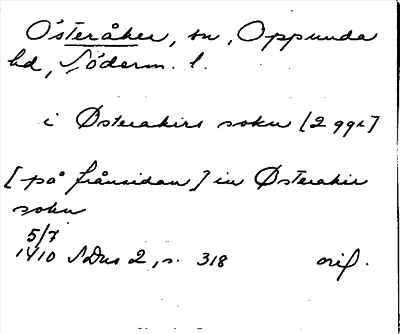 Österåker, sn, Oppunda
hd, Söderm. l.
i Østerakirs sokn [2 ggr]
[på frånsidan] in Østerakir
sokn
5/7
1410 SDns 2, s. 318 orig.